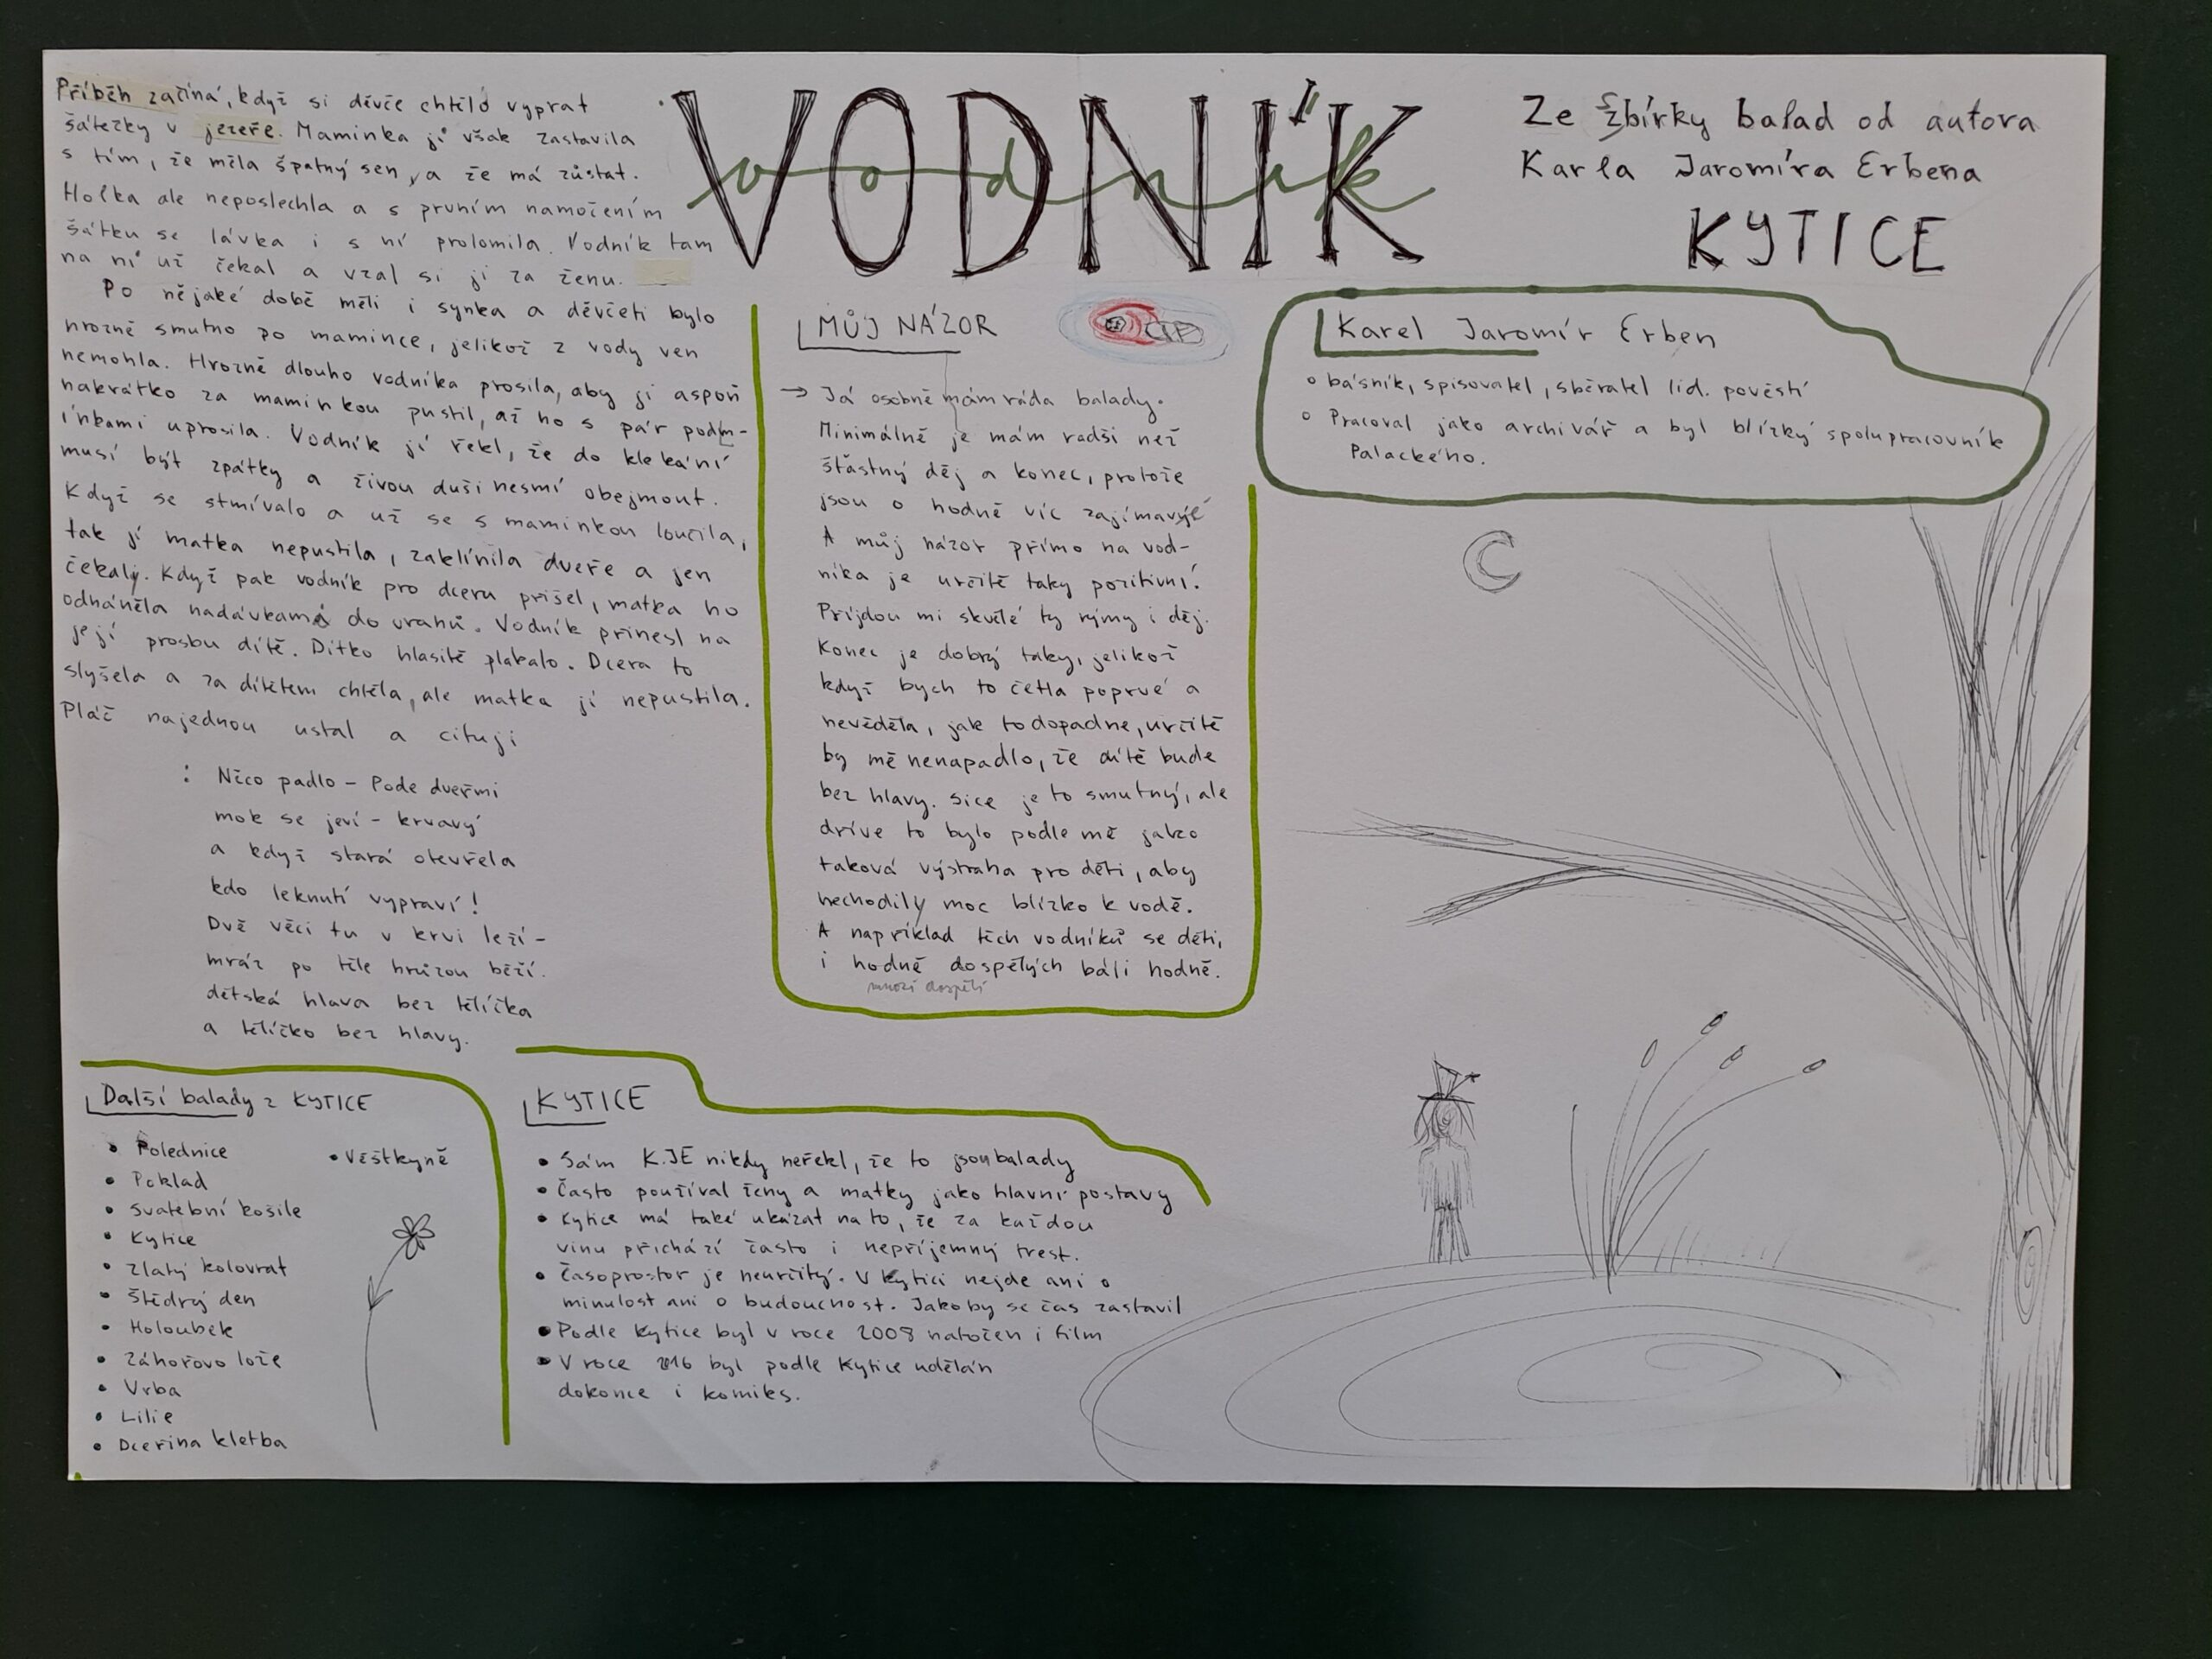 VODNÍK
vodník
Ze sbírky balad od autora
Karla Jaromíra Erbena
KYTICE
Příběh začíná, když si děvče chtělo vyprat
šátečky v jezeře. Maminka ji však zastavila
s tím, že měla špatný sen, a že má zůstat.
Holka ale neposlechla a s prvním namočením
šátku se lávka i s ní prolomila. Vodník tam
na ní už čekal a vzal si ji za ženu.
Po nějaké době měli i synka a děvčeti bylo
hrozně smutno po mamince, jelikož z vody ven
nemohla. Hrozně dlouho vodníka prosila, aby ji aspoň
nakrátko za maminkou pustil, až ho s pár podm-
ínkami uprosila. Vodník jí řekl, že do klekání
musí být zpátky a živou duši nesmí obejmout.
Když se stmívalo a už se s maminkou loučila,
tak jí matka nepustila, zaklínila dveře a jen
čekaly. Když pak vodník pro dceru přišel, matka ho
odháněla nadávkama do vrahů. Vodník přinesl na
její prosbu dítě. Dítko hlasitě plakalo. Dcera to
slyšela a za dítětem chtěla, ale matka jí nepustila.
Pláč najednou ustal a cituji
: Něco padlo - Pode dveřmi
mok se jeví - krvavý
a když stará otevřela
kdo leknutí vypraví!
Dvě věci tu v krvi leží -
mráz po těle hrůzou běží.
dětská hlava bez tělíčka
a tělíčko bez hlavy.
MŮJ NÁZOR
→ Já osobně mám ráda balady.
Minimálně je mám radši než
šťastný děj a konec, protože
jsou o hodně víc zajímavý
A můj názor přímo na vod-
níka je určitě taky pozitivní.
Příjdou mi skvělé ty rýmy i děj.
Konec je dobrý taky, jelikož
když bych to četla poprvé a
nevěděla, jak to dopadne, určitě
by mě nenapadlo, že dítě bude
bez hlavy. Sice je to smutný, ale
dříve to bylo podle mě jako
taková výstraha pro děti, aby
nechodily moc blízko k vodě.
A například těch vodníků se děti,
i hodně dospělých báli hodně.
mnozí dospělí
Karel Jaromír Erben
básník, spisovatel, sběratel lid. pověstí
Pracoval jako archivář a byl blízký spolupracovník
Palackého.
Další balady z KYTICE
• Polednice
• Věštkyně
• Poklad
• Svatební košile
• Kytice
• Zlatý kolovrat
• Štědrý den
• Holoubek
• Záhořovo lože
• Vrba
• Lilie
• Dceřina kletba
KYTICE
• Sám K.JE nikdy neřekl, že to jsou balady
• Často používal ženy a matky jako hlavní postavy
• Kytice má také ukázat na to, že za každou
vinu přichází často i nepříjemný trest.
• Časoprostor je neurčitý. V kytici nejde ani o
minulost ani o budoucnost. Jakoby se čas zastavil
• Podle Kytice byl v roce 2008 natočen i film
• V roce 2016 byl podle Kytice udělán
dokonce i komiks.